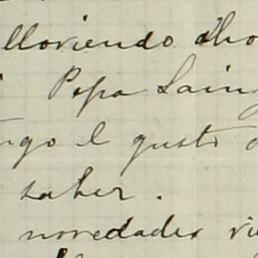 lloviendo aho
Pepa Sainz
ngo el gusto d
saber.
novedades vi